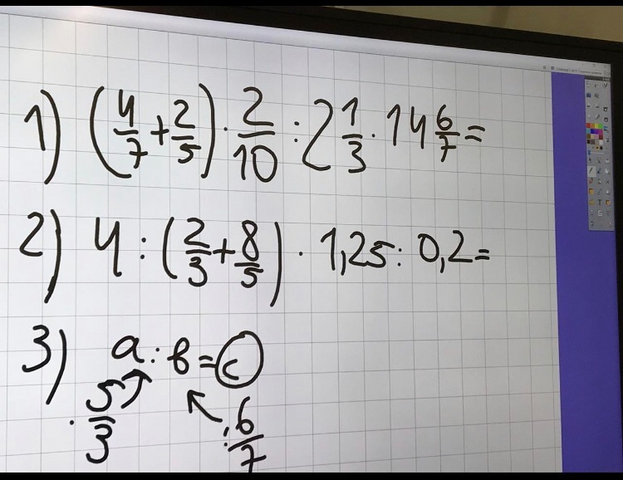 1) (4/7 + 2/5) · 2/10 : 2 1/3 · 14 6/7 =
2) 4 : (2/3 + 8/5) · 1,25 : 0,2 =
3) a : b = c
· 5/3 : 6/7